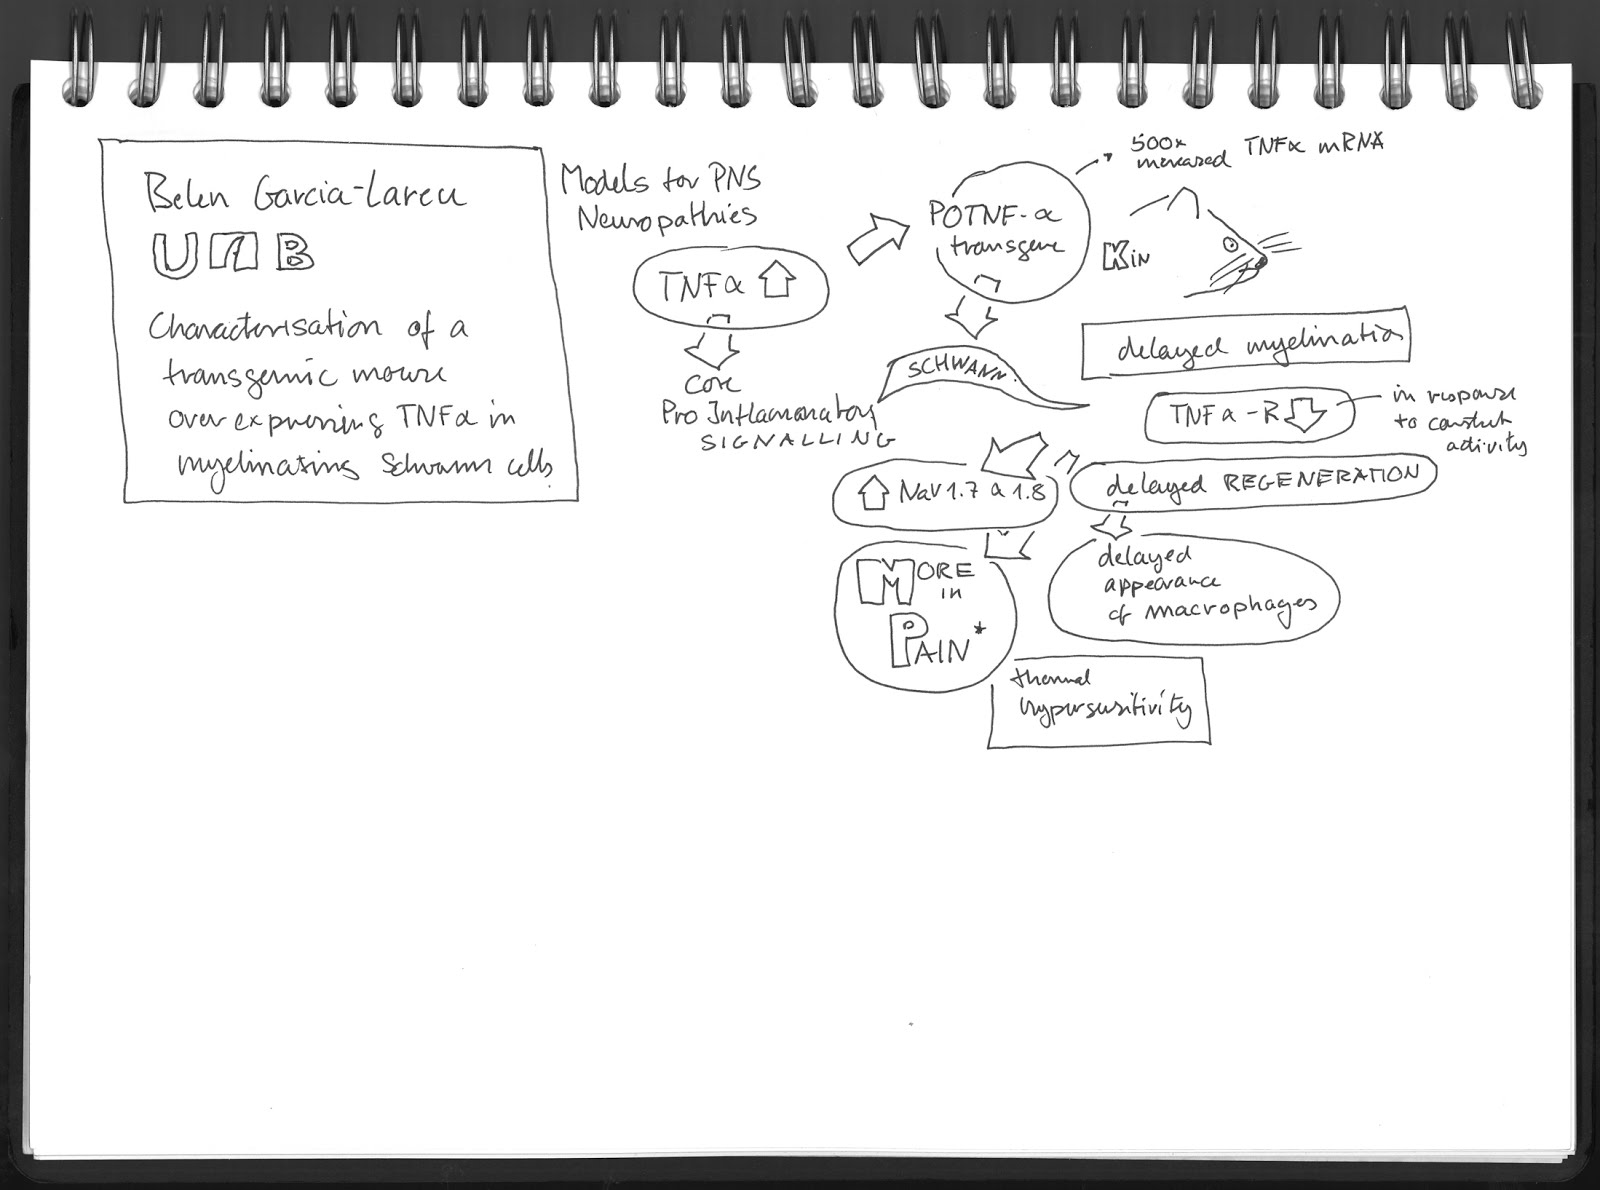 Belen Garcia-Lareu
UAB
Characterisation of a
transgenic mouse
overexpressing TNFα in
myelinating Schwann cells
Models for PNS
Neuropathies
TNFα
core
Pro Inflammatory
SIGNALLING
P0TNF-α
transgene
500x
increased TNFα mRNA
Kin
SCHWANN
delayed myelination
TNFα-R
in response
to constit
activity
Nav 1.7 a 1.8
delayed REGENERATION
delayed
appearance
of macrophages
MORE
in
PAIN*
thermal
hypersensitivity